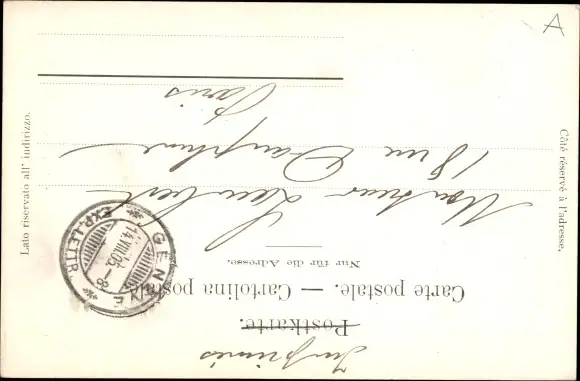 Imprimés
Postkarte.
Carte postale. — Cartolina postale
Nur für die Adresse.
Côté réservé à l'adresse.
Lato riservato all' indirizzo.
Monsieur Lambert
18 rue Dauphine
Paris
GENÈVE
14.VIII.05.–8
EXP. LETTR.
A